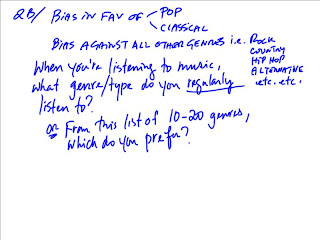 QB/ BIAS IN FAV OF POP
CLASSICAL
BIAS AGAINST ALL OTHER GENRES i.e. ROCK
COUNTRY
HIP HOP
ALTERNATIVE
etc. etc.
When you're listening to music,
what genre/type do you regularly
listen to?
or From this list of 10-20 genres,
which do you prefer?